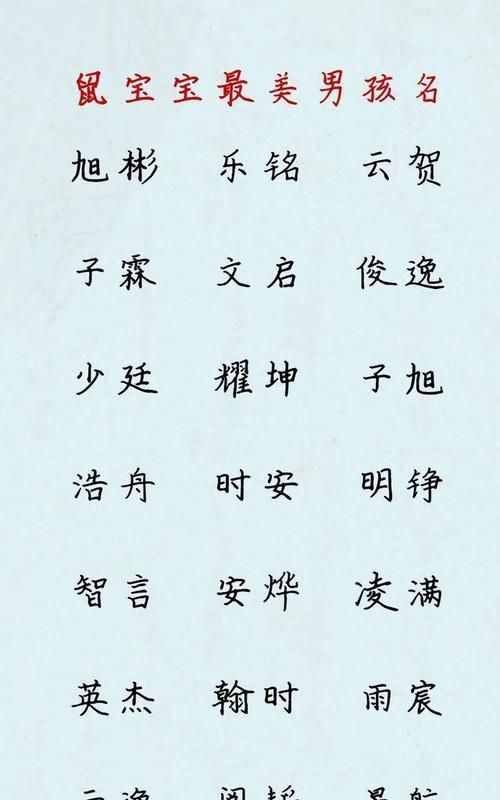 鼠宝宝最美男孩名
旭彬 乐铭 云贺
子霖 文启 俊逸
少廷 耀坤 子旭
浩舟 时安 明铮
智言 安烨 凌满
英杰 翰时 雨宸